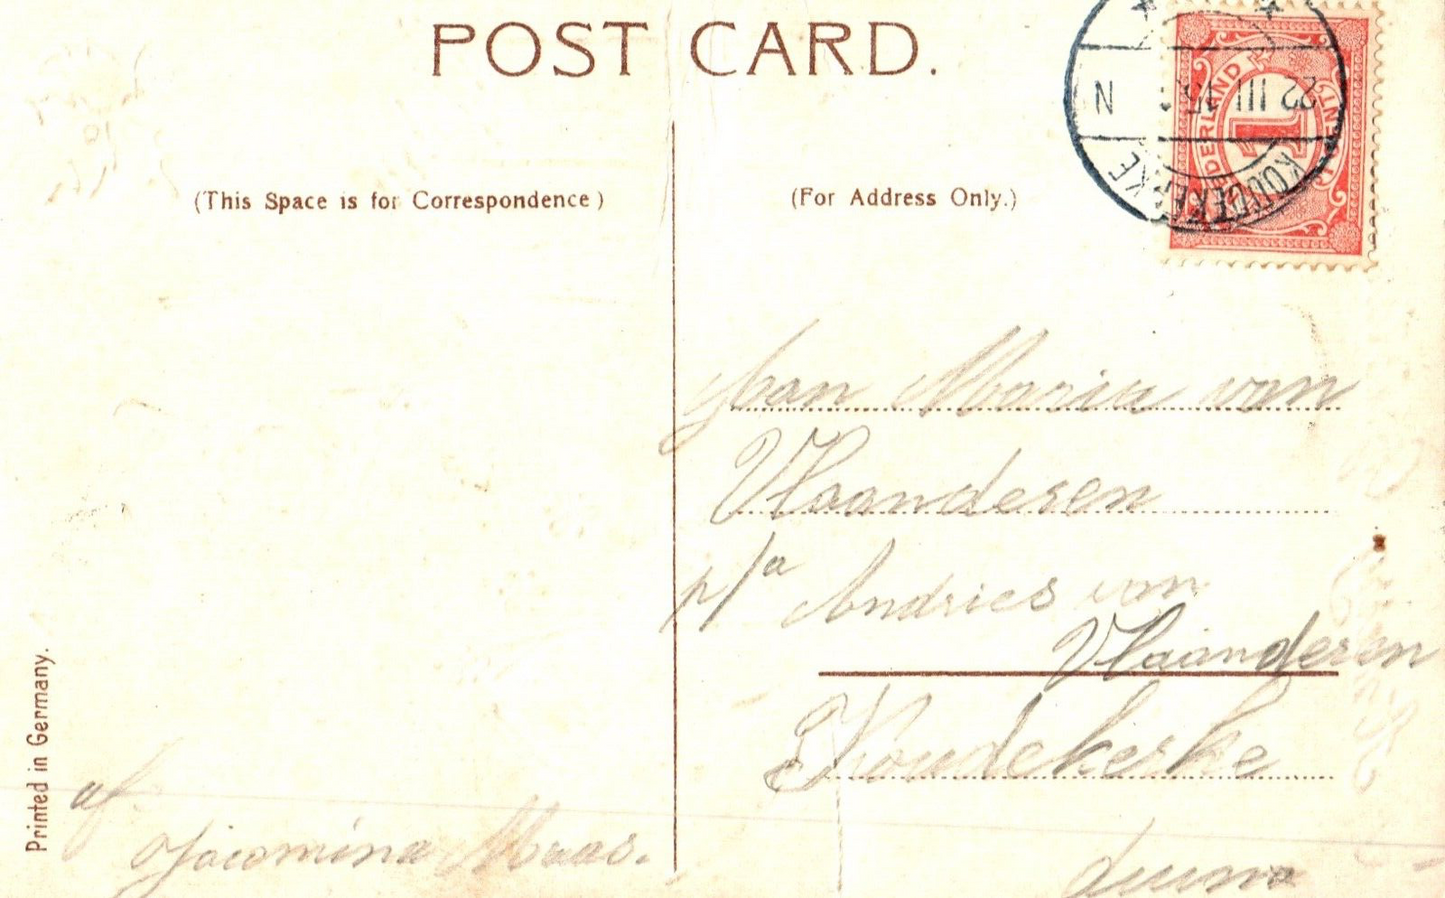 POST CARD.
N 22 III 15
KOUDEKERKE
NEDERLAND
1
(This Space is for Correspondence)
(For Address Only.)
Jan Maria van
Vlaanderen
p/a Andries van
Vlaanderen
Koudekerke
Printed in Germany.
af
Jacomina Maas.